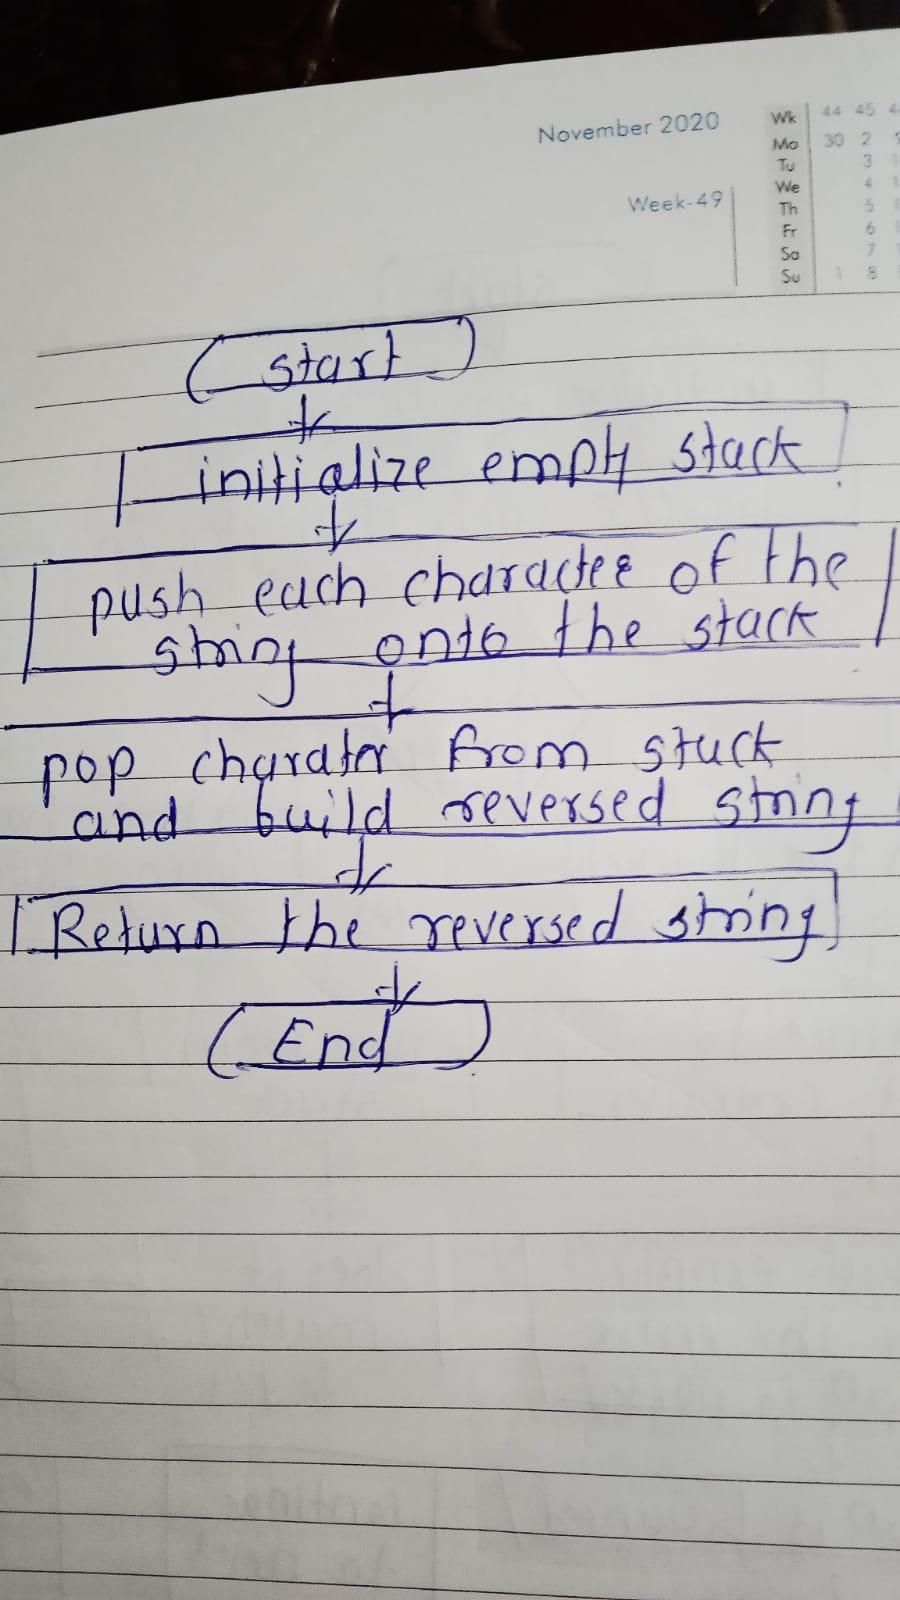 November 2020
Week-49
Wk 44 45
Mo 30 2
Tu 3
We 4
Th 5
Fr 6
Sa 7
Su 1 8
start
initialize empty stack
push each character of the
string onto the stack
pop charater from stack
and build reversed string
Return the reversed string
End